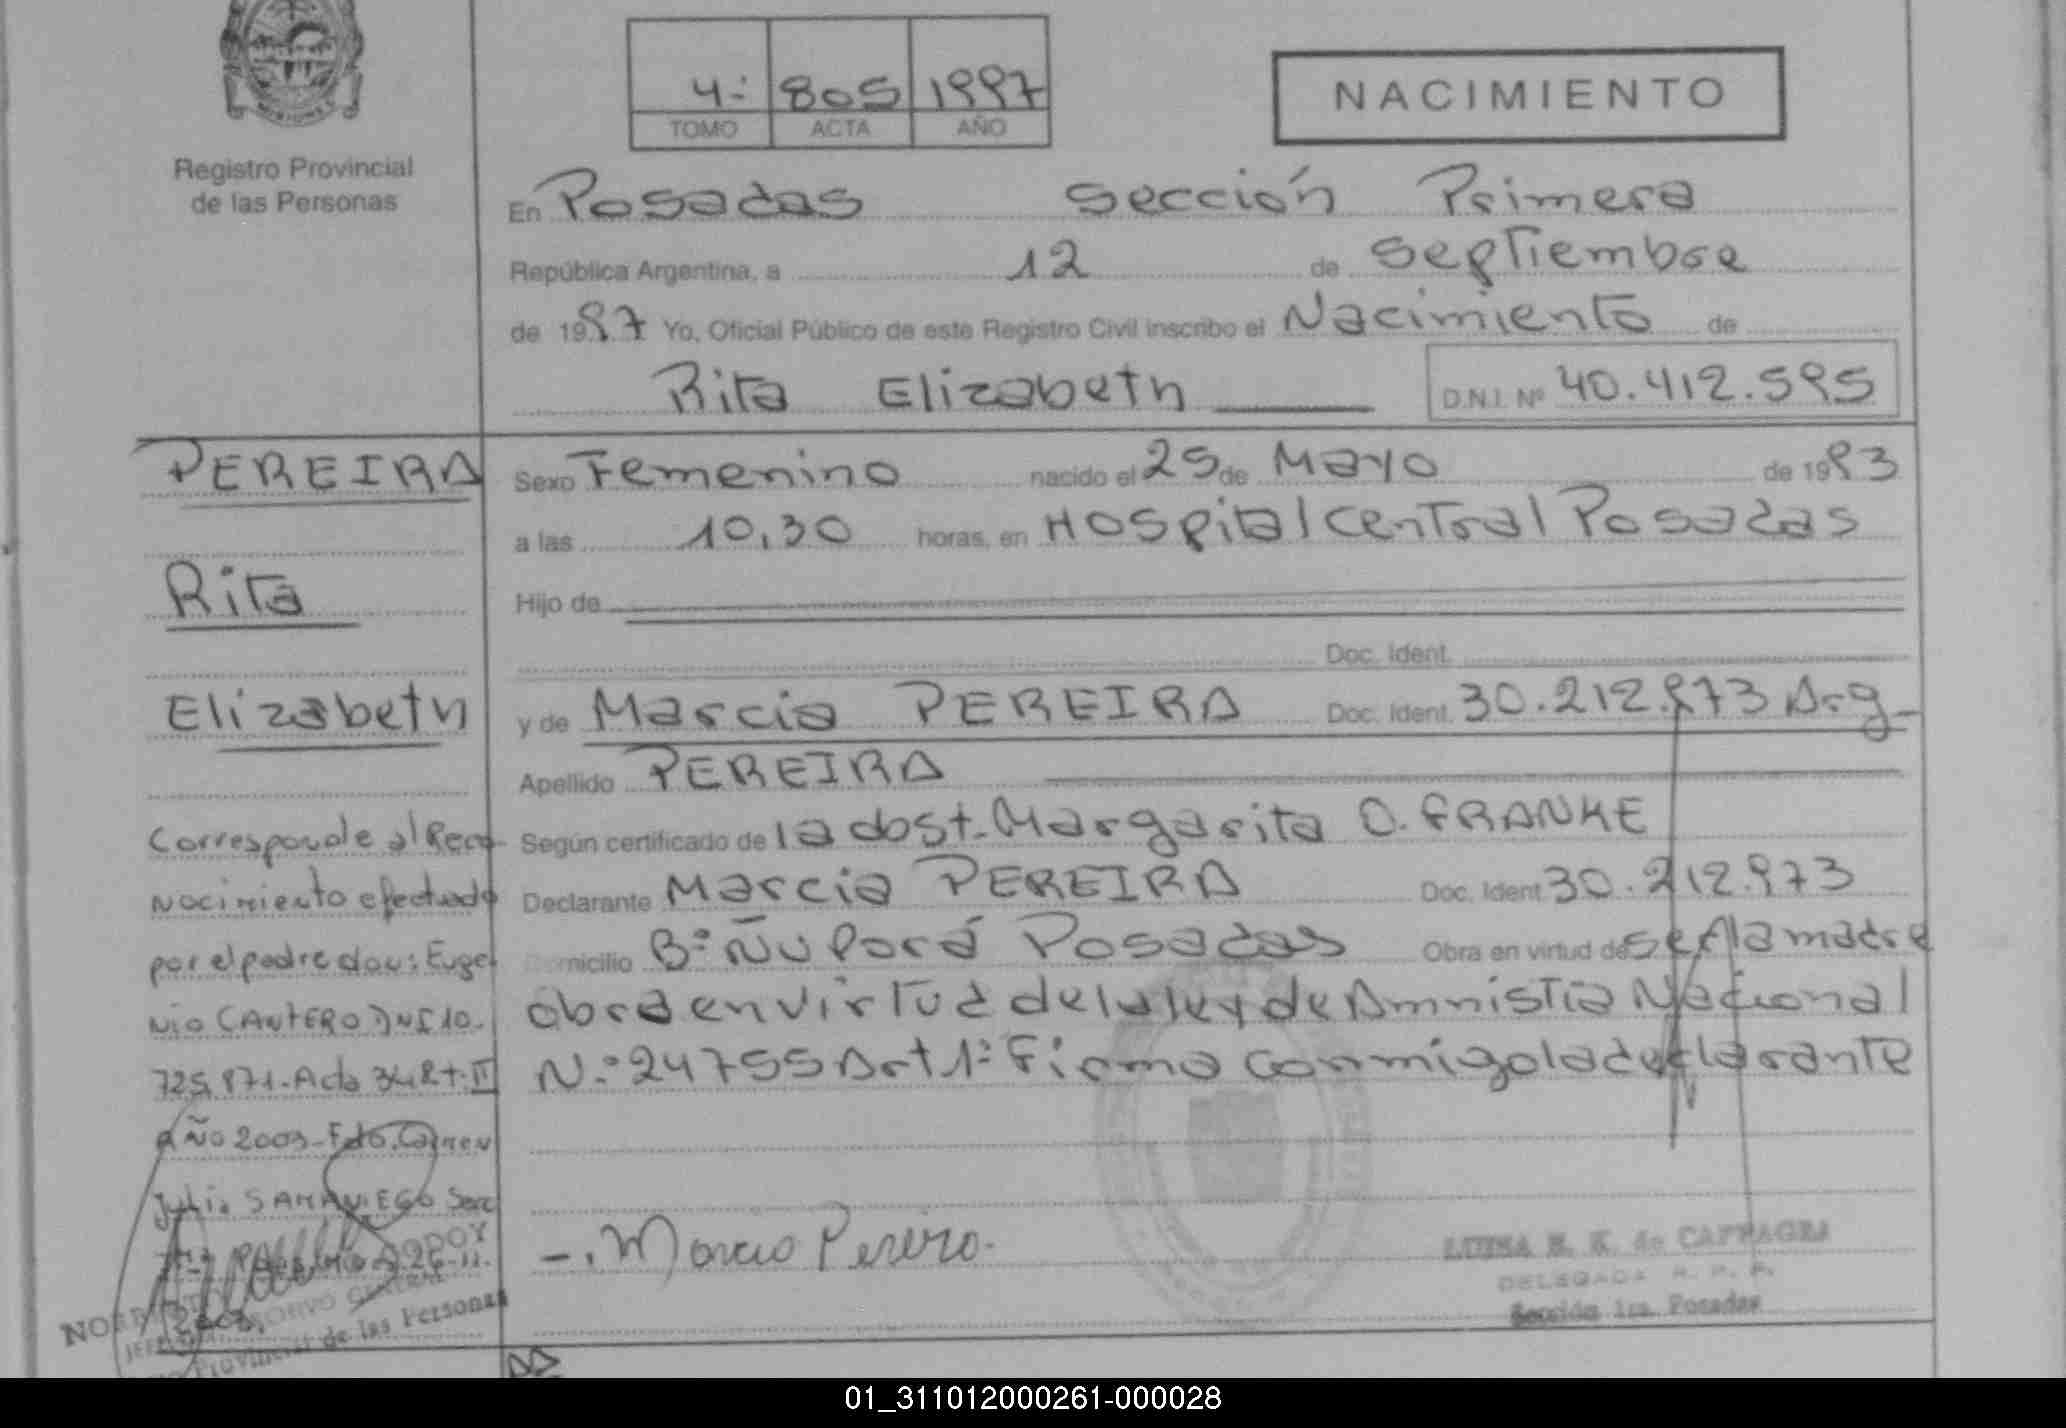 MISIONES
Registro Provincial
de las Personas
4º 805 1997
TOMO ACTA AÑO
NACIMIENTO
En Posadas Sección Primera
República Argentina, a 12 de septiembre
de 1997 Yo, Oficial Público de este Registro Civil inscribo el Nacimiento de
Rita Elizabeth D.N.I. Nº 40.412.595
PEREIRA
Rita
Elizabeth
Sexo Femenino nacido el 25 de Mayo de 1993
a las 10,30 horas, en Hospital Central Posadas
Hijo de
Doc. Ident.
y de Marcia PEREIRA Doc. Ident. 30.212.973 Arg_
Apellido PEREIRA
Según certificado de la obst. Margarita O. FRANKE
Declarante Marcia PEREIRA Doc. Ident 30.212.973
Domicilio Bº Ñu Porá Posadas Obra en virtud de ser la madre
obra en virtud de la ley de Amnistia Nacional
N.º 24755 Art 1º Firma conmigo la declarante
Corresponde al Reco-
nocimiento efectuado
por el padre don: Euge
nio CANTERO DNI 10.
725.871-Acta 342 t. II
Año 2003-Fdo. Carmen
Julia SAMANIEGO Sec
-. Marcia Pereira.
LUISA E. K. de CAFFAGRA
DELEGADA R. P. P.
Sección 1ra. Posadas
GODOY
ARCHIVO GENERAL
Provincial de las Personas
01_311012000261-000028